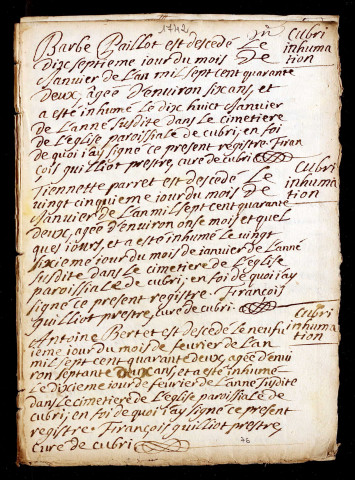 1742
Barbe Paillot est descedé Le
Dix septieme jour du mois De
Cubri
inhuma
tion
Januier de Lan mil sept cent quarante
Deux, agée d'enuiron six ans, et
a esté inhumé Le dix huict Januier
de L'anné susdite dans Le cimetiere
de L'eglise paroissiale de cubri, en foi
de quoi j'ay signé ce present registre. Fran
çois quilliot prestre, curé de cubri
Cubri
inhuma
tion
Tiennette parret est descedé Le
vingt cinquieme jour du mois De
Januier de Lan mil sept cent quarante
deux, agée d'enuiron onse mois et quel
ques jours, et a esté inhumé Le vingt
sixieme jour du mois de ianuier de L'anné
susdite dans Le cimetiere de L'eglise
paroissiale de cubri, en foi de quoi j'ay
signé ce present registre. François
quilliot prestre, curé de cubri
Cubri
inhuma
tion
Antoine Bertet est descedé Le neufu
ieme jour du mois de feurier de L'an
mil sept cent quarante deux, agée d'enui
ron septante deux ans, et a esté inhumé
Le dixieme jour de feurier de L'anné susdite
dans Le cimetiere de L'eglise paroissiale de
cubri, en foi de quoi j'ay signé ce present
registre. François quilliot prestre,
curé de cubri